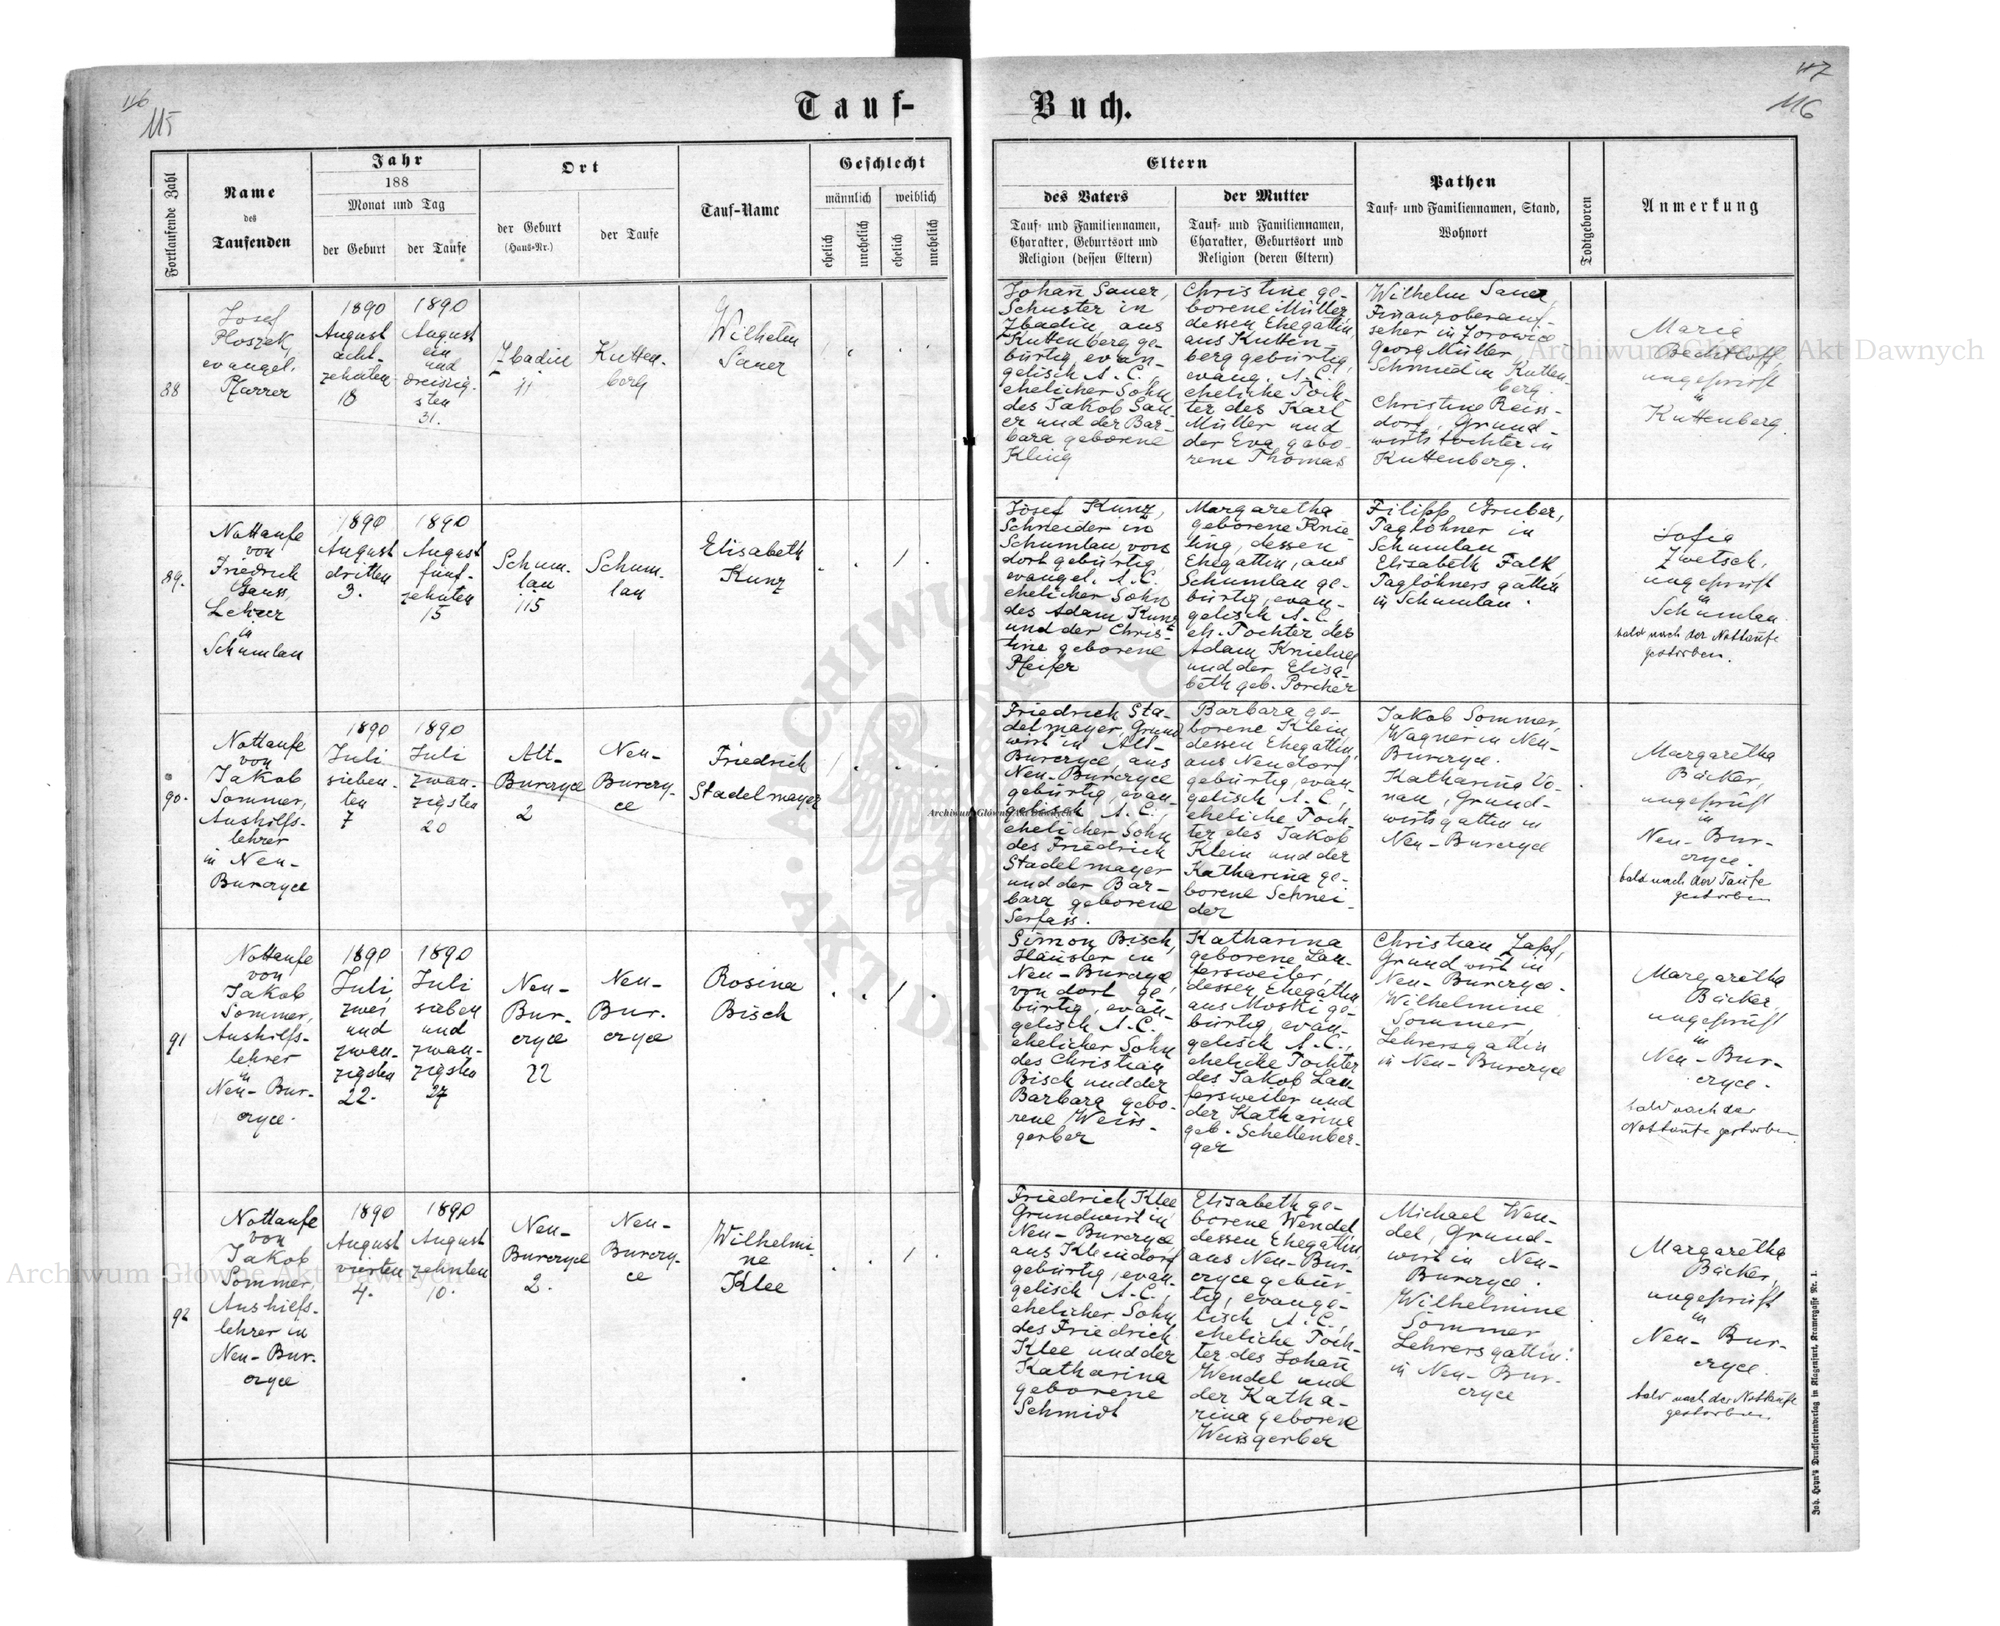 116
115
Tauf-
Buch.
117
116
Fortlaufende Zahl
Name
des
Taufenden
Jahr
188
Monat und Tag
der Geburt
der Taufe
Ort
der Geburt
(Haus-Nr.)
der Taufe
Tauf-Name
Geschlecht
männlich
weiblich
ehelich
unehelich
ehelich
unehelich
Eltern
des Vaters
Tauf- und Familiennamen,
Charakter, Geburtsort und
Religion (dessen Eltern)
der Mutter
Tauf- und Familiennamen,
Charakter, Geburtsort und
Religion (deren Eltern)
Pathen
Tauf- und Familiennamen, Stand,
Wohnort
Todtgeboren
Anmerkung
88
Josef
Ploszek,
evangel.
Pfarrer
1890
August
acht-
zehnten
18
1890
August
ein
und
dreiszig-
sten
31.
Zbadin
11
Kutten-
berg
Wilhelm
Sauer
Johan̄ Sauer,
Schuster in
Zbadin, aus
Kuttenberg ge-
bürtig, evan-
gelisch A. C.,
ehelicher Sohn
des Jakob Sau-
er und der Bar-
bara geborene
Kling
Christine ge-
borene Müller,
dessen Ehegattin,
aus Kutten-
berg gebürtig,
evang. A. C.,
eheliche Toch-
ter des Karl
Müller und
der Eva gebo-
rene Thomas
Wilhelm Sauer,
Finanzoberauf-
seher in
Georg Müller,
Schmied in Kutten-
berg.
Christine Reiss-
dorf, Grund-
wirtstochter in
Kuttenberg.
Maria
Bechtloff,
ungeprüft
in
Kuttenberg.
89.
Nottaufe
von
Friedrich
Gauss,
Lehrer
in
Schumlau
1890
August
dritten
3.
1890
August
fünf-
zehnten
15
Schum-
lau
115
Schum-
lau
Elisabeth
Kunz
Josef Kunz,
Schneider in
Schumlau, von
dort gebürtig,
evangel. A. C.
ehelicher Sohn
des Adam Kunz
und der Chris-
tine geborene
Pfeifer
Margaretha
geborene Knie-
ling, dessen
Ehegattin, aus
Schumlau ge-
bürtig, evan-
gelisch A. C.,
eh. Tochter des
Adam Knieling
und der Elisa-
beth geb. Porcher
Filipp Gruber,
Taglöhner in
Schumlau
Elisabeth Falk,
Taglöhnersgattin
in Schumlau.
Sofia
Zwetsch,
ungeprüft
in
Schumlau
bald nach der Nottaufe
gestorben.
90.
Nottaufe
von
Jakob
Sommer,
Aushilfs-
lehrer
in Neu-
Burczyce
1890
Juli
sieben-
ten
7
1890
Juli
zwan-
zigsten
20
Alt-
Burczyce
2
Neu-
Burczy-
ce
Friedrich
Stadelmayer
Friedrich Sta-
delmayer, Grund-
wirt in Alt-
Burczyce, aus
Neu-Burczyce
gebürtig, evan-
gelisch A. C.,
ehelicher Sohn
des Friedrich
Stadelmayer
und der Bar-
bara geborene
Serfass.
Barbara ge-
borene Klein,
dessen Ehegattin,
aus Neudorf
gebürtig, evan-
gelisch A. C.,
eheliche Toch-
ter des Jakob
Klein und der
Katharina ge-
borene Schnei-
der
Jakob Sommer,
Wagner in Neu-
Burczyce.
Katharina Vo-
nau, Grund-
wirtsgattin in
Neu-Burczyce
Margaretha
Bäcker,
ungeprüft
in
Neu-Bur-
czyce.
bald nach der Taufe
gestorben
91
Nottaufe
von
Jakob
Sommer,
Aushilfs-
lehrer
in
Neu-Bur-
czyce.
1890
Juli
zwei
und
zwan-
zigsten
22.
1890
Juli
sieben
und
zwan-
zigsten
27
Neu-
Bur-
czyce
22
Neu-
Bur-
czyce
Rosina
Bisch
Simon Bisch,
Häusler in
Neu-Burczyce,
von dort ge-
bürtig, evan-
gelisch A. C.,
ehelicher Sohn
des Christian
Bisch und der
Barbara gebo-
rene Weiss-
gerber
Katharina
geborene Lau-
fersweiler,
dessen Ehegattin,
aus Moski ge-
bürtig, evan-
gelisch A. C.,
eheliche Tochter
des Jakob Lau-
fersweiler und
der Katharine
geb. Schellenber-
ger
Christian Zapf,
Grundwirt in
Neu-Burczyce.
Wilhelmine
Sommer,
Lehrersgattin
in Neu-Burczyce
Margaretha
Bäcker,
ungeprüft
in
Neu-Bur-
czyce.
bald nach der
Nottaufe gestorben.
92
Nottaufe
von
Jakob
Sommer,
Aushilfs-
lehrer in
Neu-Bur-
czyce
1890
August
vierten
4.
1890
August
zehnten
10.
Neu-
Burczyce
2.
Neu-
Burczy-
ce
Wilhelmi-
ne
Klee
Friedrich Klee
Grundwirt in
Neu-Burczyce
aus Kleindorf
gebürtig, evan-
gelisch A. C.,
ehelicher Sohn
des Friedrich
Klee und der
Katharina
geborene
Schmidt
Elisabeth ge-
borene Wendel,
dessen Ehegattin,
aus Neu-Bur-
czyce gebür-
tig, evange-
lisch A. C.,
eheliche Toch-
ter des Johan̄
Wendel und
der Katha-
rina geborene
Weissgerber
Michael Wen-
del, Grund-
wirt in Neu-
Burczyce.
Wilhelmine
Sommer,
Lehrersgattin
in Neu-Bur-
czyce
Margaretha
Bäcker,
ungeprüft
in
Neu-Bur-
czyce.
bald nach der Nottaufe
gestorben.
Joh. Heyn's Drucksortenverlag in Klagenfurt, Kramergasse Nr. 1.
Archiwum Główne Akt Dawnych
Archiwum Główne Akt Dawnych
Archiwum Główne Akt Dawnych